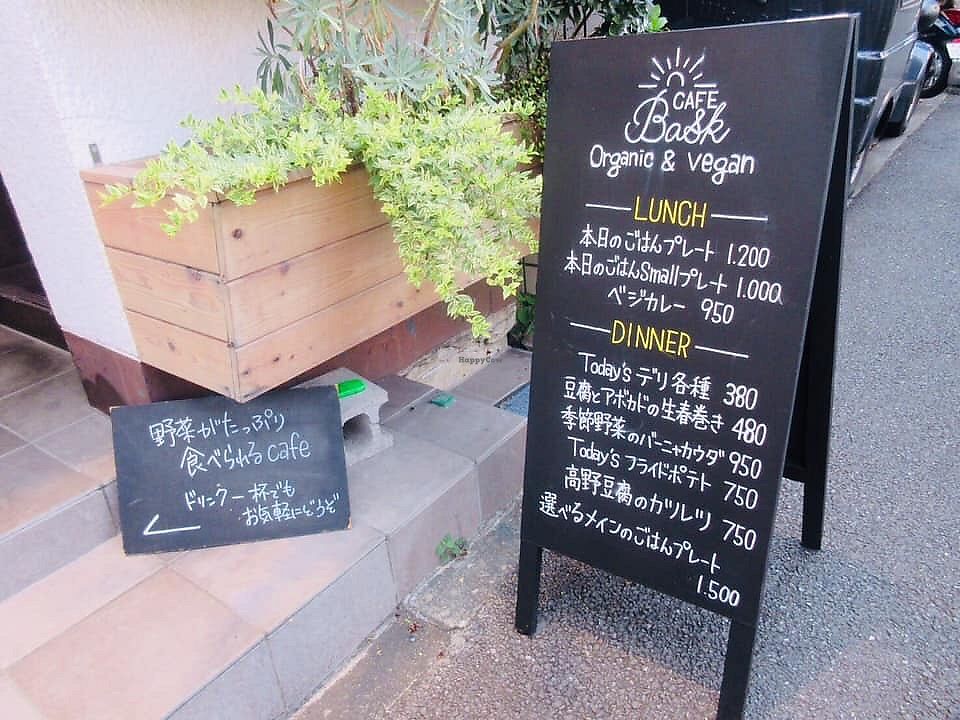 CAFE
Bask
Organic & vegan
LUNCH
本日のごはんプレート 1.200
本日のごはんSmallプレート 1.000
ベジカレー 950
DINNER
Today's デリ各種 380
豆腐とアボカドの生春巻き 480
季節野菜のバーニャカウダ 950
Today's フライドポテト 750
高野豆腐のカツレツ 750
選べるメインのごはんプレート
1.500
野菜がたっぷり
食べられるcafe
ドリンク一杯でも
お気軽にどうぞ
HappyCow